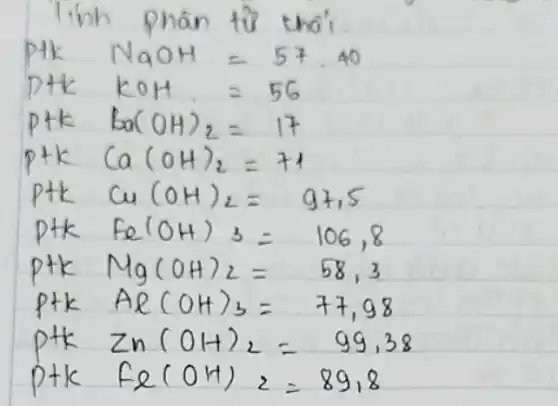 Tính phân tử khối
ptk NaOH = 57.40
ptk KOH = 56
ptk Ba(OH)2 = 17
ptk Ca(OH)2 = 71
ptk Cu(OH)2 = 97,5
ptk Fe(OH)3 = 106,8
ptk Mg(OH)2 = 58,3
ptk Al(OH)3 = 77,98
ptk Zn(OH)2 = 99,38
ptk Fe(OH)2 = 89,8